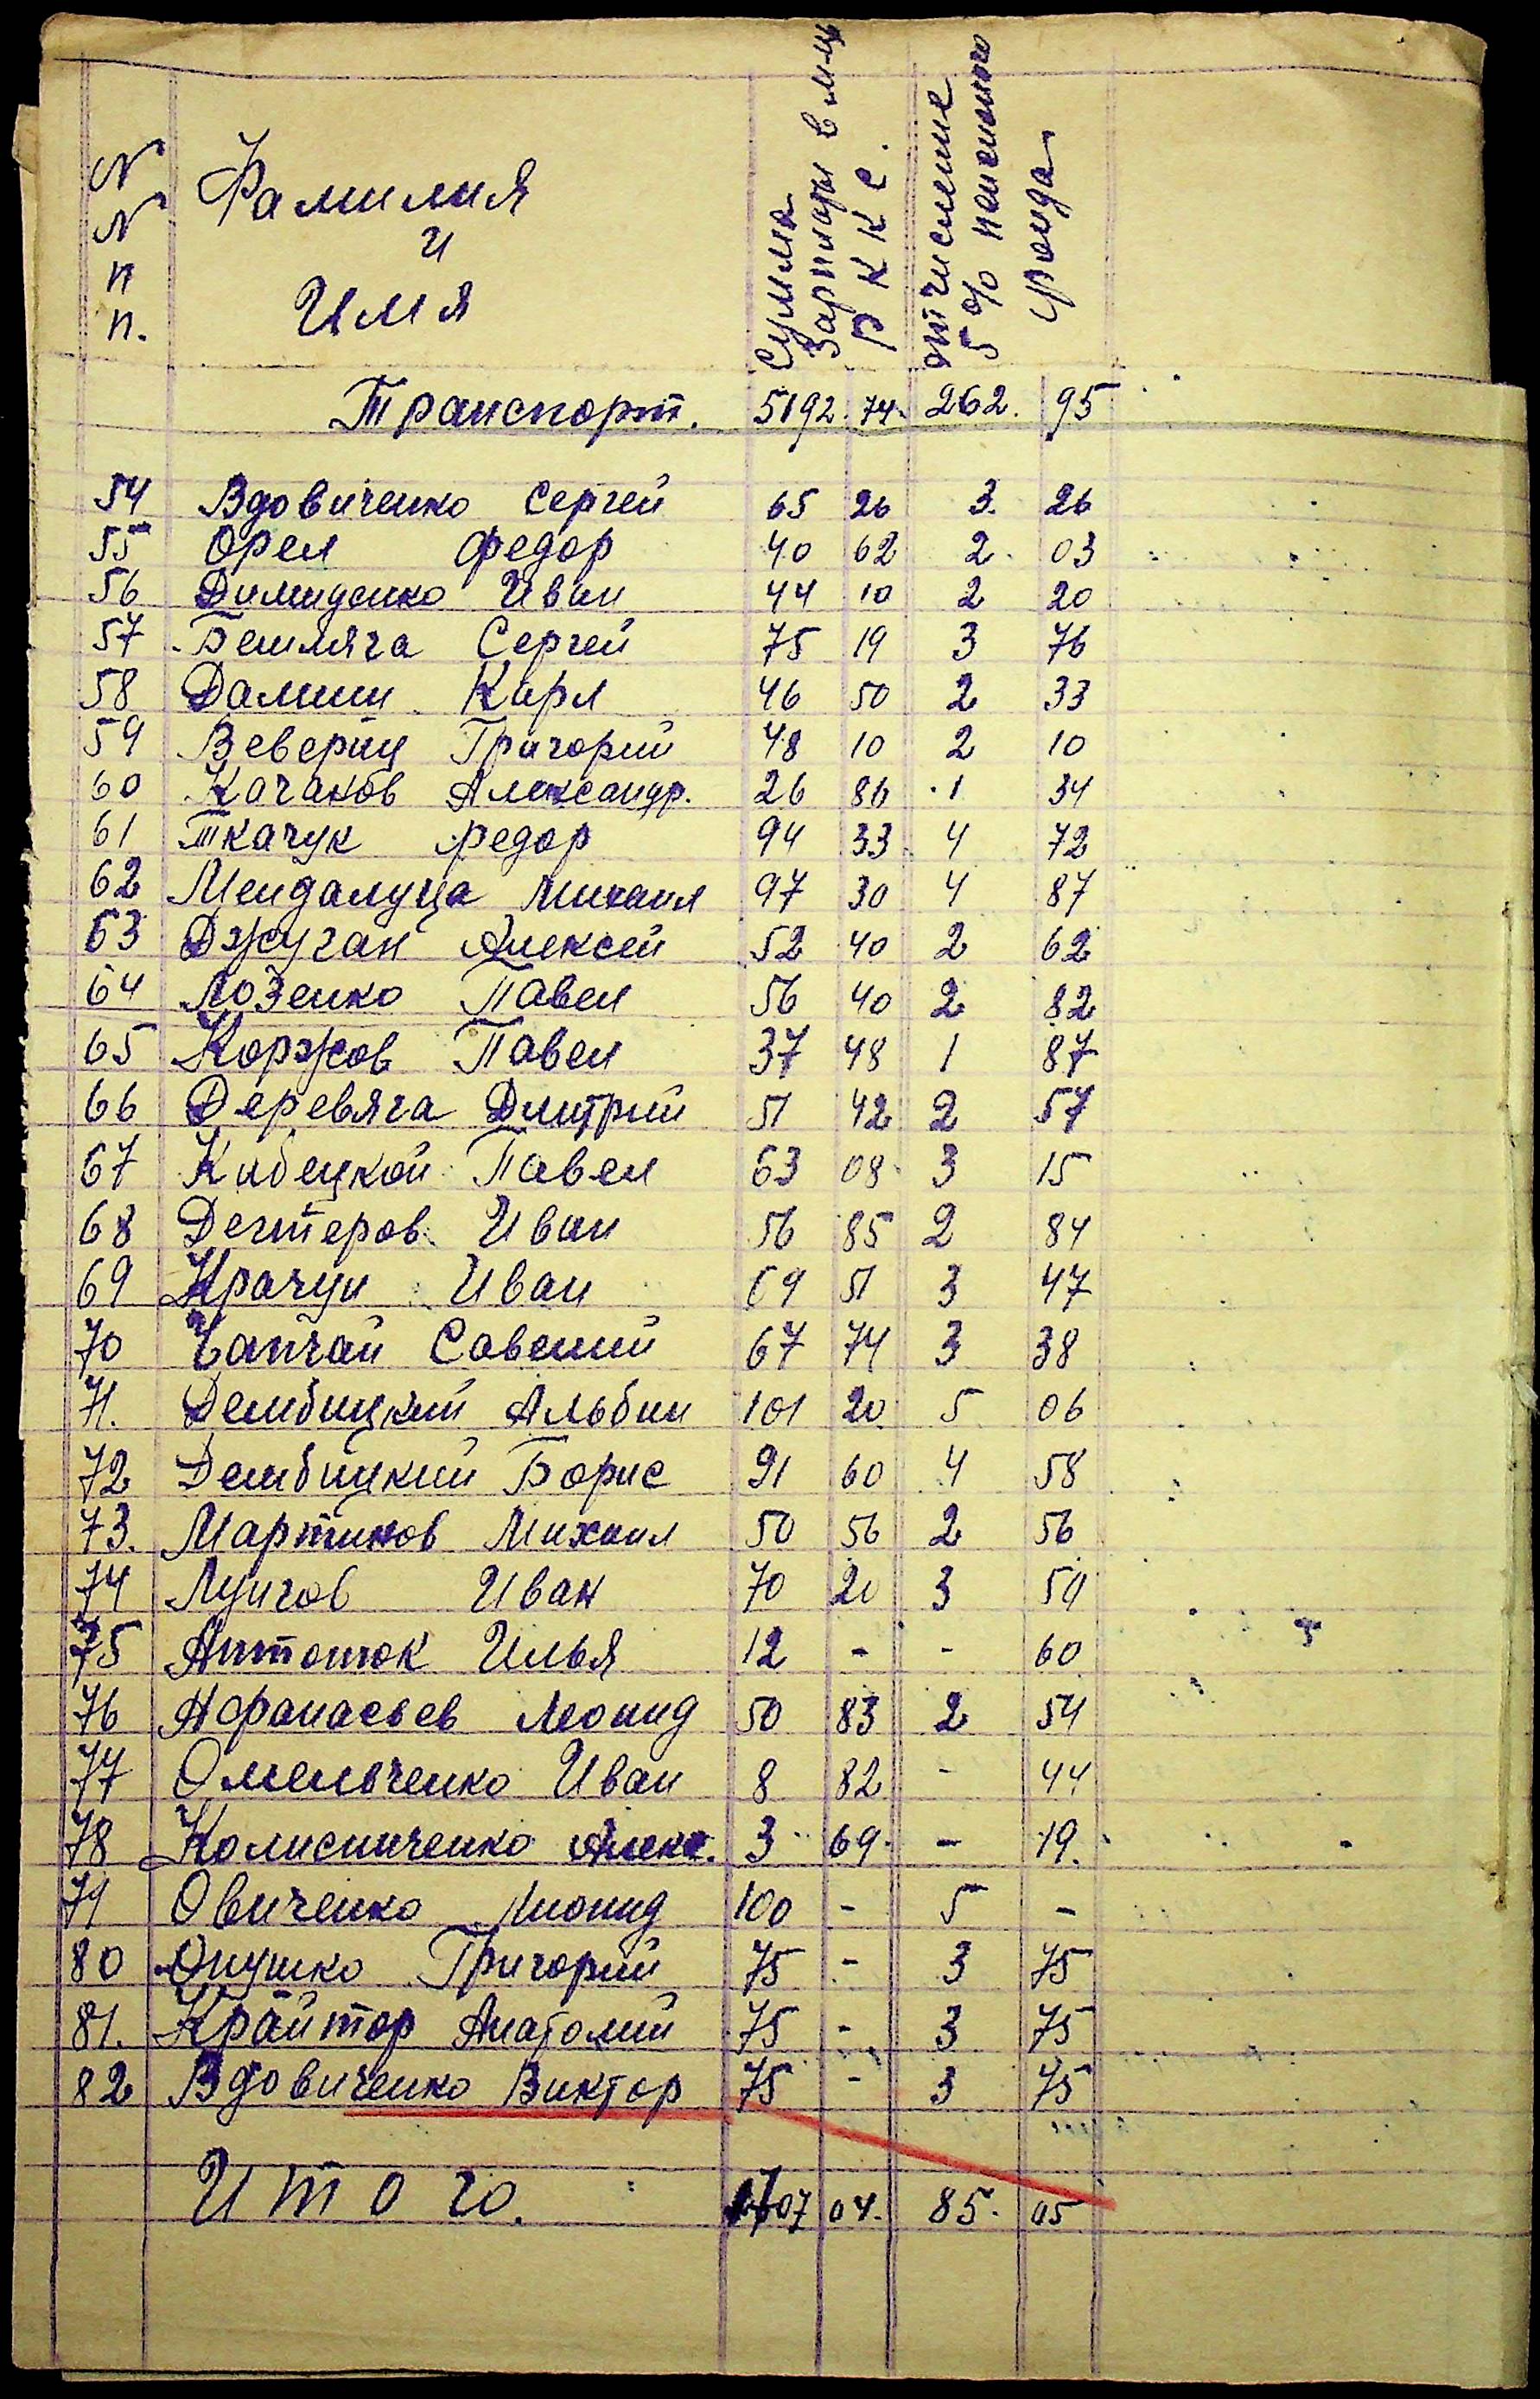 N N п п.
Фамилия
и
Имя
Сумма
Зарплаты в м-ца
Р К К С.
отчисление
5% пенсионного
фонда
Транспорт. 5192. 74. 262. 95
54 Вдовиченко Сергей 65 26 3. 26
55 Орел Федор 40 62 2. 03
56 Димиденко Иван 44 10 2 20
57 Бешляга Сергей 75 19 3 76
58 Дамин Карл 46 50 2 33
59 Вевериц Григорий 48 10 2 10
60 Качаков Александр. 26 86 1 34
61 Ткачук Федор 94 33 4 72
62 Мендалуца Михаил 97 30 4 87
63 Джуган Алексей 52 40 2 62
64 Лозенко Павел 56 40 2 82
65 Коржов Павел 37 48 1 87
66 Деревяга Дмитрий 51 42 2 57
67 Кибецкой Павел 63 08 3 15
68 Дегтеров Иван 56 85 2 84
69 Крачун Иван 69 51 3 47
70 Чапчай Савелий 67 74 3 38
71. Дембицкий Альбин 101 20 5 06
72 Дембицкий Борис 91 60 4 58
73. Мартинов Михаил 50 56 2 56
74 Лунгов Иван 70 20 3 51
75 Антонюк Илья 12 - - 60
76 Афанасьев Леонид 50 83 2 54
77 Омельченко Иван 8 82 - 44
78 Колисниченко Алекс. 3 69 - 19.
79 Овиченко Лионид 100 - 5 -
80 Онушко Григорий 75 - 3 75
81. Крайтор Анатолий 75 - 3 75
82 Вдовиченко Виктор 75 - 3 75
Итого. 1707 04. 85. 05